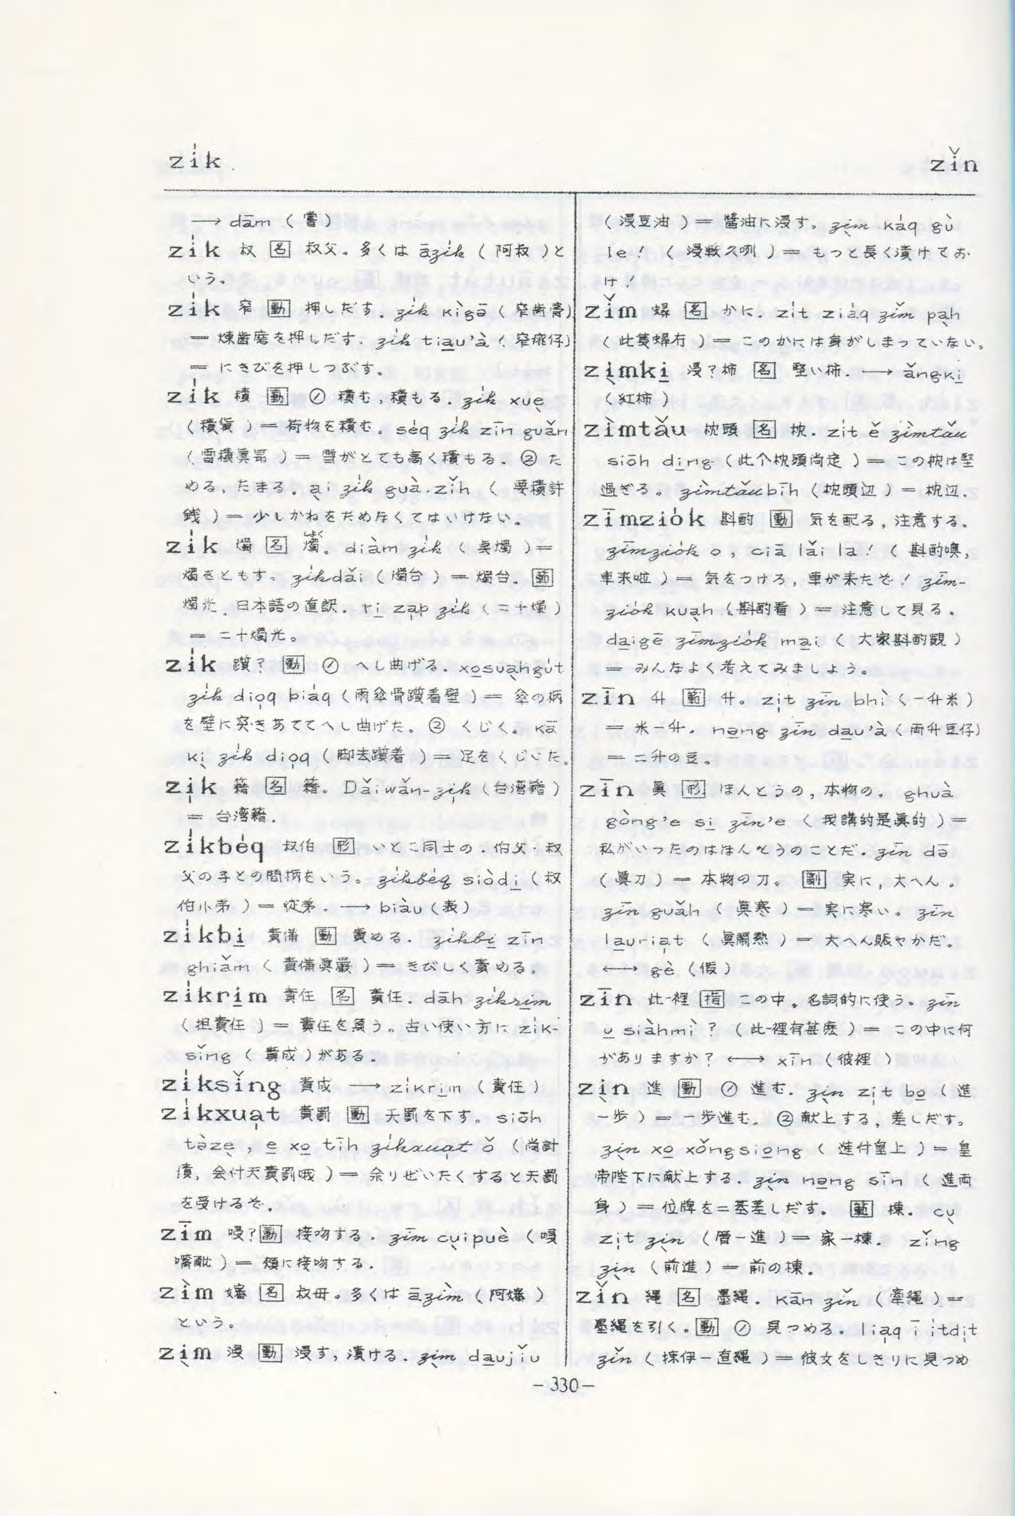 zi̍k
zǐn
⟶ dām (嘗)
zi̍k 叔 名 叔父. 多くは āzi̍k (阿叔)と
いう。
zi̍k 窄 動 押しだす. zi̍k kìgō (窄歯膏)
= 煉歯磨を押しだす. zi̍k tiau'à (窄痱仔)
= にきびを押しつぶす.
zi̍k 積 動 ① 積む, 積もる. zi̍k xue
(積貨) = 荷物を積む. séq zi̍k zīn guǎn
(雪積真高) = 雪がとても高く積もる. ② た
める, たまる. ai zi̍k guà·zǐh (要積許
銭) = 少しかねをためなくてはいけない.
zi̍k 燭 名 燭. diàm zi̍k (点燭) =
燭をともす. zi̍kdǎi (燭台) = 燭台. 範
燭光. 日本語の直訳. ri zap zi̍k (二十燭)
= 二十燭光。
zi̍k 蹟? 動 ① へし曲げる. xosuahgút
zi̍k dioq biáq (雨傘骨蹟着壁) = 傘の柄
を壁に突きあててへし曲げた. ② くじく. kā
ki zi̍k dioq (脚去蹟着) = 足をくじいた.
zi̍k 籍 名 籍. Dǎiwǎn-zik (台湾籍)
= 台湾籍.
zi̍kbéq 叔伯 形 いとこ同士の. 伯父·叔
父の子との間柄をいう. zi̍kbéq siòdi (叔
伯小弟) = 従弟. ⟶ biàu (表)
zi̍kbi 責備 動 責める. zi̍kbi zīn
ghiǎm (責備真厳) = きびしく責める.
zi̍krim 責任 名 責任. dāh zi̍krim
(担責任) = 責任を負う. 古い使い方に zi̍k-
sǐng (責成)がある.
zi̍ksǐng 責成 ⟶ zi̍krim (責任)
zi̍kxuat 責罰 動 天罰を下す. siōh
tàze, e xo tīh zi̍kxuat ò (尚討
債, 会付天責罰哦) = 余りぜいたくすると天罰
を受けるぞ.
zīm 唚? 動 接吻する. zīm cuipuè (唚
嘴䫌) = 頬に接吻する.
zìm 嬸 名 叔母. 多くは āzìm (阿嬸)
という。
zim 浸 動 浸す, 漬ける. zim daujiǔ
(浸豆油) = 醬油に浸す. zim káq gù
le! (浸較久咧) = もっと長く漬けてお
け!
zǐm 蟳 名 かに. zit ziáq zǐm pah
(此隻蟳冇) = このかには身がしまっていない.
zimki 浸?柿 名 堅い柿. ⟶ ǎngki
(紅柿)
zìmtǎu 枕頭 名 枕. zit ě zìmtǎu
siōh ding (此个枕頭尚定) = この枕は堅
過ぎる. zìmtǎubīh (枕頭辺) = 枕辺.
zīmzi̍ók 斟酌 動 気を配る, 注意する.
zīmzi̍ók o, ciā lǎi la! (斟酌噢,
車来啦) = 気をつけろ, 車が来たぞ! zīm-
zi̍ók kuah (斟酌看) = 注意して見る.
daigē zīmzi̍ók mai (大家斟酌覓)
= みんなよく考えてみましょう.
zīn 升 範 升. zit zīn bhì (一升米)
= 米一升. nəng zīn dau'à (両升豆仔)
= 二升の豆.
zīn 真 形 ほんとうの, 本物の. ghuà
gòng'e si zīn'e (我講的是真的) =
私がいったのはほんとうのことだ. zīn dō
(真刀) = 本物の刀. 副 実に, 大へん.
zīn guǎh (真寒) = 実に寒い. zīn
lauriat (真鬧熱) = 大へん賑やかだ.
⟷ gè (假)
zīn 此-裡 指 この中. 名詞的に使う. zīn
u siàhmì? (此-裡有甚麼) = この中に何
がありますか? ⟷ xīn (彼裡)
zin 進 動 ① 進む. zin zit bo (進
一歩) = 一歩進む. ② 献上する, 差しだす.
zin xo xǒngsiong (進付皇上) = 皇
帝陛下に献上する. zin nəng sīn (進両
身) = 位牌を二基差しだす. 範 棟. cu
zit zin (厝一進) = 家一棟. zǐng
zin (前進) = 前の棟.
zǐn 縄 名 墨縄. kān zǐn (牽縄) =
墨縄を引く. 動 ① 見つめる. liaq ī itdit
zǐn (掠伊一直縄) = 彼女をしきりに見つめ
－330－